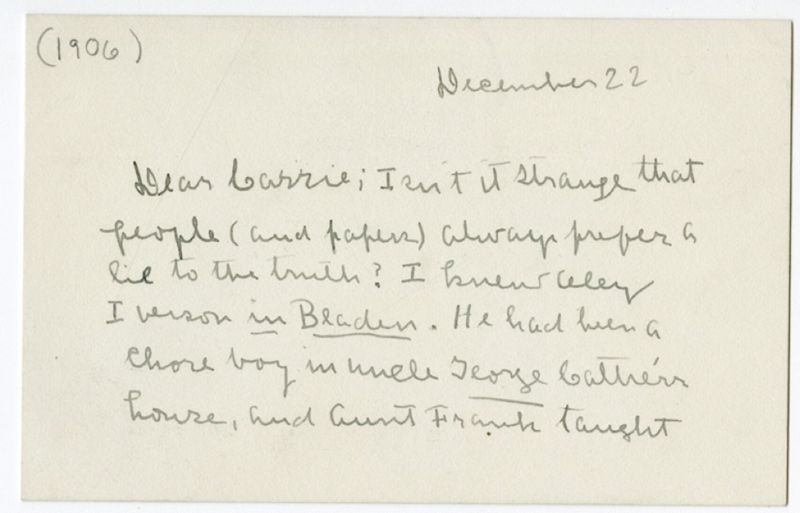 (1906)
December 22
Dear Carrie; Isn't it strange that
people (and papers) always prefer a
lie to the truth? I knew Aley
Iverson in Bladen. He had been a
chore boy in uncle George Cather's
house, and Aunt Frank taught